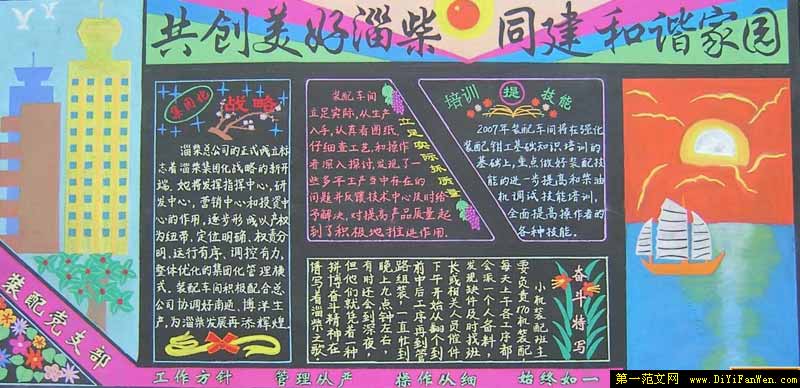 共创美好淄柴 同建和谐家园
集团化
战略
淄柴总公司的正式成立标
志着淄柴集团化战略的新开
端，她将发挥指挥中心，研
发中心，营销中心和投资中
心的作用，逐步形成以产权
为纽带，定位明确、权责分
明，运行有序，调控有力，
整体优化的集团化管理模
式。装配车间积极配合总
公司协调好南通、博洋生
产，为淄柴发展再添辉煌
装配车间
立足实际，从生产
入手，认真看图纸，
仔细查工艺，和操作
者深入探讨，发现了一
些多年生产当中存在的
问题并反馈技术中心及时给
予解决，对提高产品质量起
到了积极地推进作用.
立足实际抓质量
培训 提 技能
2007年装配车间将在强化
装配钳工基础知识培训的
基础上，重点做好装配技
能的进一步提高和柴油
机调试技能培训，
全面提高操作者的
各种技能。
奋斗特写
小机装配班主
要负责170机装配
每天上午各工序都
会派一个人备料，
发现缺件及时找班
长或相关人员催件
下午开始从翻个到
前中后工序再到管
路组装，一直忙到
晚上九点钟左右，
有时还会到深夜，
但他们就凭着一种
拼搏奋斗精神在
谱写着淄柴之歌
装配党支部
工作方针 管理从严 操作从细 始终如一
第一范文网 www.DiYiFanWen.com